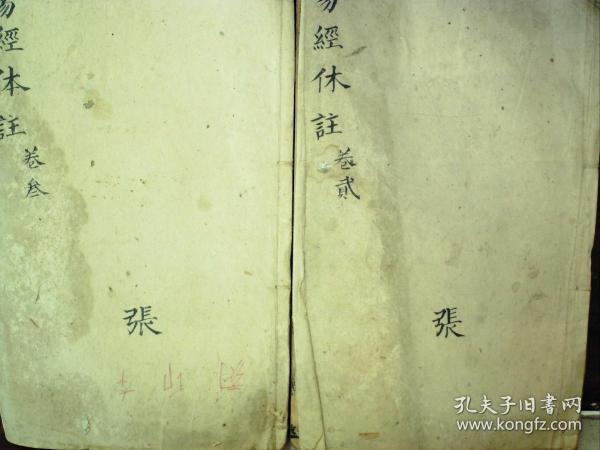 易經休註
卷貳
張
易經体註
卷叁
張
孔夫子旧书网
www.kongfz.com